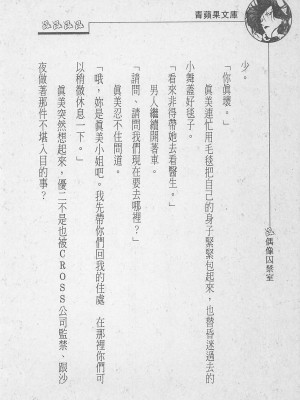 青蘋果文庫
偶像囚禁室
少。
「你真壞。」
眞美連忙用毛毯把自己的身子緊緊包起來，也替昏迷過去的
小舞蓋好毯子。
「看來非得帶她去看醫生。」
男人繼續開著車。
「請問、請問我們現在要去哪裡？」
眞美忍不住問道。
「哦，妳是眞美小姐吧。我先帶你們回我的住處 在那裡你們可
以稍微休息一下。」
眞美突然想起來，優二不是也被CROSS公司監禁、跟沙
夜做著那件不堪入目的事？